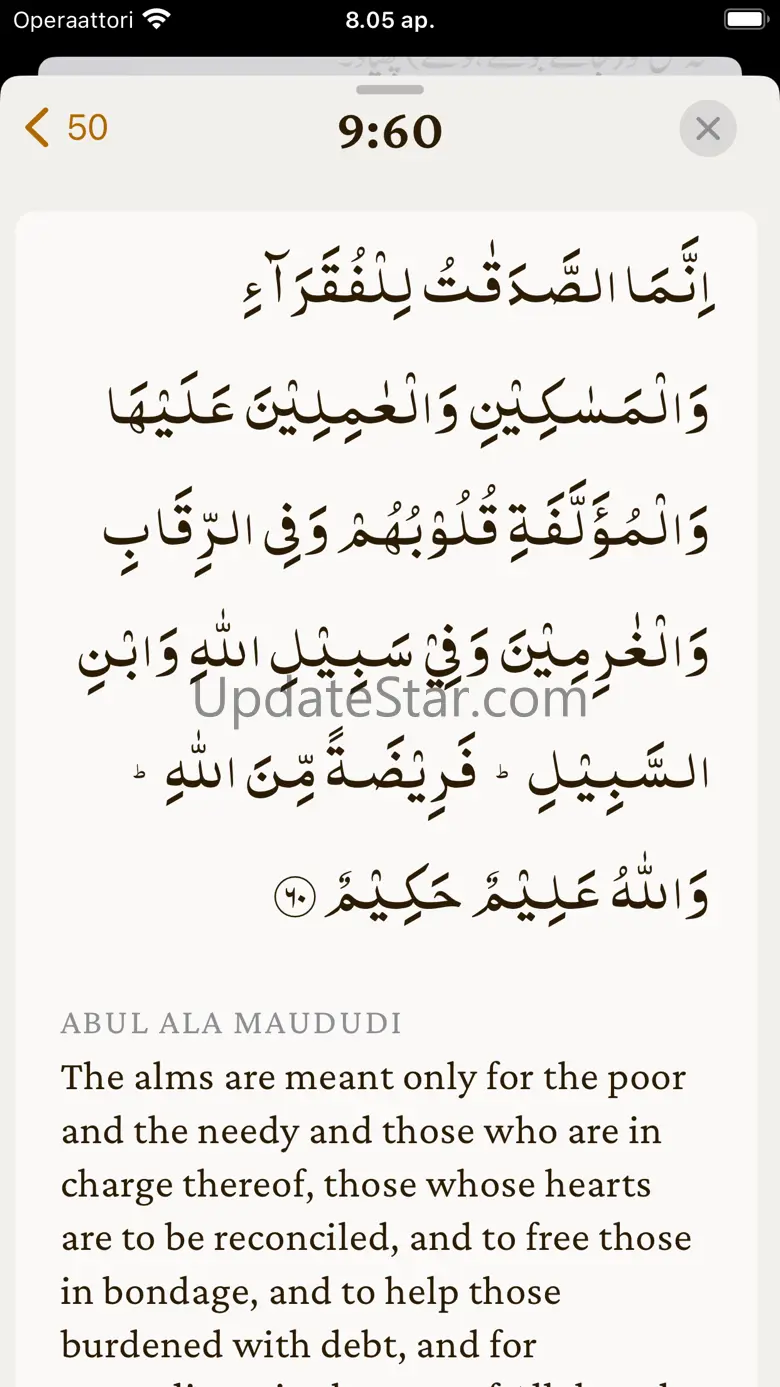 Operaattori 8.05 ap.
50 9:60
اِنَّمَا الصَّدَقٰتُ لِلْفُقَرَآءِ
وَالْمَسٰكِيْنِ وَالْعٰمِلِيْنَ عَلَيْهَا
وَالْمُؤَلَّفَةِ قُلُوْبُهُمْ وَفِى الرِّقَابِ
وَالْغٰرِمِيْنَ وَفِيْ سَبِيْلِ اللّٰهِ وَابْنِ
UpdateStar.com
السَّبِيْلِ ؕ فَرِيْضَةً مِّنَ اللّٰهِ ؕ
وَاللّٰهُ عَلِيْمٌ حَكِيْمٌ ٦٠
ABUL ALA MAUDUDI
The alms are meant only for the poor
and the needy and those who are in
charge thereof, those whose hearts
are to be reconciled, and to free those
in bondage, and to help those
burdened with debt, and for